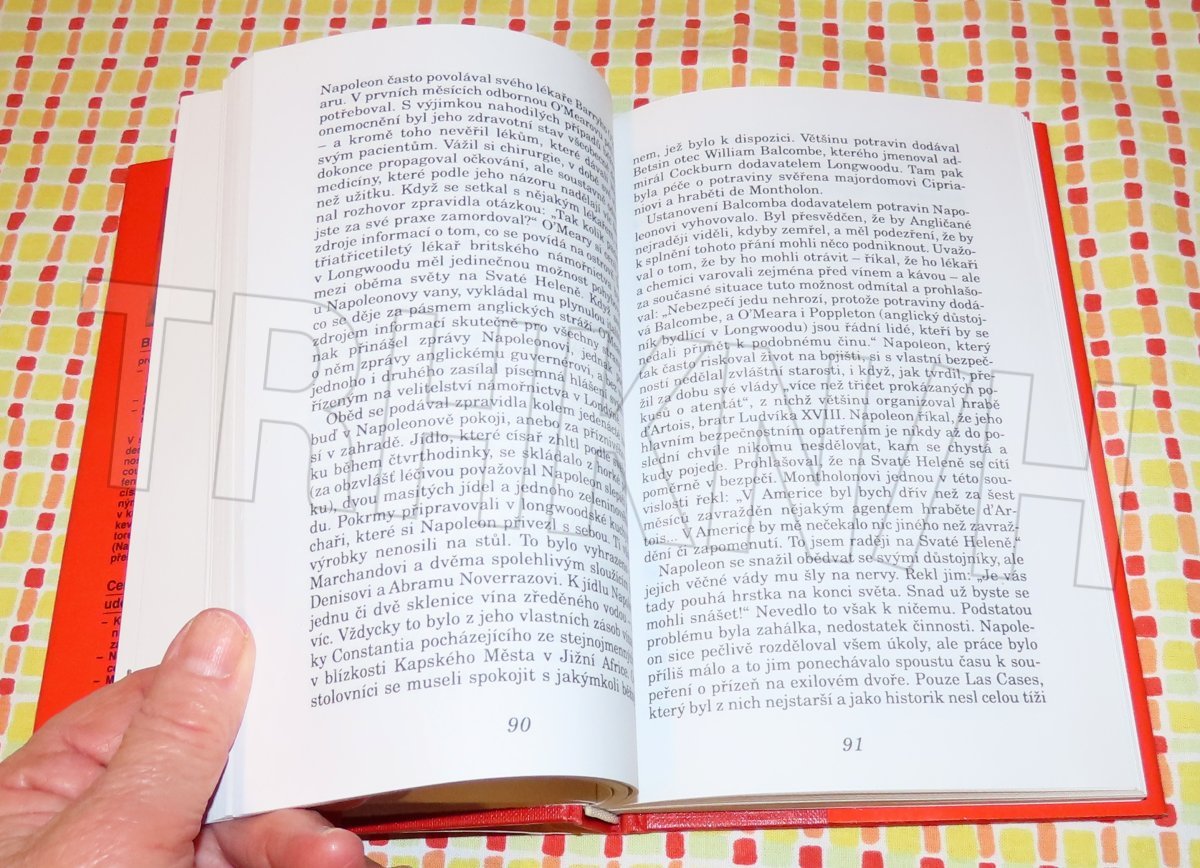 Napoleon často povolával svého lékaře
aru. V prvních měsících odbornou O'Mearovu
potřeboval. S výjimkou nahodilých případů
onemocnění byl jeho zdravotní stav
– a kromě toho nevěřil lékům, které
svým pacientům. Vážil si chirurgie, v době
dokonce propagoval očkování, ale soustavně
medicíny, které podle jeho názoru nadělají
než užitku. Když se setkal s nějakým lékařem
nal rozhovor zpravidla otázkou: „Tak kolik
jste za své praxe zamordoval?“ O'Meary si
zdroje informací o tom, co se povídá na ostrově
třiatřicetiletý lékař britského námořnictva
v Longwoodu měl jedinečnou možnost
mezi oběma světy na Svaté Heleně. Když
u Napoleonovy vany, vykládal mu plynulou
co se děje za pásmem anglických stráží.
zdrojem informací skutečně pro všechny
nak přinášel zprávy Napoleonovi, jednak
o něm zprávy anglickému guvernérovi, a
jednoho i druhého zasílal písemná hlášení
řízeným na velitelství námořnictva v
Oběd se podával zpravidla kolem
buď v Napoleonově pokoji, anebo za
sí v zahradě. Jídlo, které císař zhltl podle
ku během čtvrthodinky, se skládalo z horké
(za obzvlášť léčivou považoval Napoleon
ku, dvou masitých jídel a jednoho
du. Pokrmy připravovali v longwoodské
chaři, které si Napoleon přivezl s sebou. Ti
výrobky nenosili na stůl. To bylo
Marchandovi a dvěma spolehlivým
Denisovi a Abramu Noverrazovi. K jídlu
jednu či dvě sklenice vína zředěného vodou
víc. Vždycky to bylo z jeho vlastních zásob
ky Constantia pocházejícího ze
v blízkosti Kapského Města v Jižní Africe.
stolovníci se museli spokojit s jakýmkoli
90
nem, jež bylo k dispozici. Většinu potravin dodával
Betsin otec William Balcombe, kterého jmenoval ad-
mirál Cockburn dodavatelem Longwoodu. Tam pak
byla péče o potraviny svěřena majordomovi Cipria-
niovi a hraběti de Montholon.
Ustanovení Balcomba dodavatelem potravin Napo-
leonovi vyhovovalo. Byl přesvědčen, že by Angličané
nejraději viděli, kdyby zemřel, a měl podezření, že by
k splnění tohoto přání mohli něco podniknout. Uvažo-
val o tom, že by ho mohli otrávit – říkal, že ho lékaři
a chemici varovali zejména před vínem a kávou – ale
za současné situace tuto možnost odmítal a prohlašo-
val: „Nebezpečí jedu nehrozí, protože potraviny dodá-
vá Balcombe, a O'Meara i Poppleton (anglický důstoj-
ník bydlící v Longwoodu) jsou řádní lidé, kteří by se
nedali přimět k podobnému činu.“ Napoleon, který
tak často riskoval život na bojišti, si s vlastní bezpeč-
ností nedělal zvláštní starosti, i když, jak tvrdil, pře-
žil za dobu své vlády „více než třicet prokázaných po-
kusů o atentát“, z nichž většinu organizoval hrabě
d'Artois, bratr Ludvíka XVIII. Napoleon říkal, že jeho
hlavním bezpečnostním opatřením je nikdy až do po-
slední chvíle nikomu nesdělovat, kam se chystá a
kudy pojede. Prohlašoval, že na Svaté Heleně se cítí
poměrně v bezpečí. Montholonovi jednou v této sou-
vislosti řekl: „V Americe bych byl dřív než za šest
měsíců zavražděn nějakým agentem hraběte d'Ar-
tois... V Americe by mě nečekalo nic jiného než zavraž-
dění či zapomenutí. To jsem raději na Svaté Heleně.“
Napoleon se snažil obědvat se svými důstojníky, ale
jejich věčné vády mu šly na nervy. Řekl jim: „Je vás
tady pouhá hrstka na konci světa. Snad už byste se
mohli snášet!“ Nevedlo to však k ničemu. Podstatou
problému byla zahálka, nedostatek činnosti. Napole-
on sice pečlivě rozděloval všem úkoly, ale práce bylo
příliš málo a to jim ponechávalo spoustu času k sou-
peření o přízeň na exilovém dvoře. Pouze Las Cases,
který byl z nich nejstarší a jako historik nesl celou tíži
91
TRHKNIH